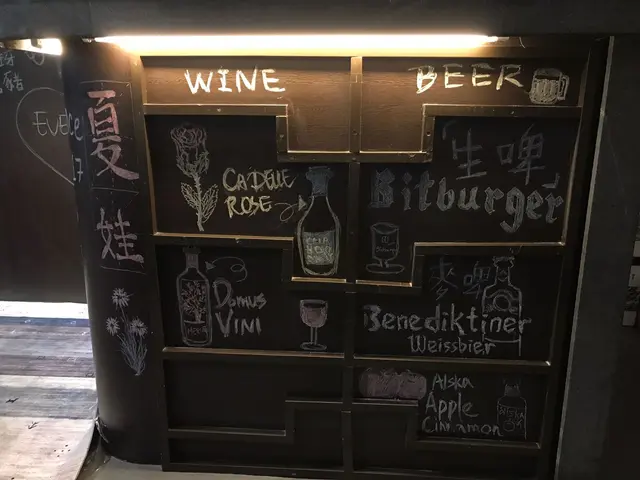 夏
娃
WINE
CA'DELLE
ROSE
DOMUS
VINI
BEER
「生啤」
Bitburger
麥啤
Benediktiner
Weissbier
Alska
Apple
Cinnamon